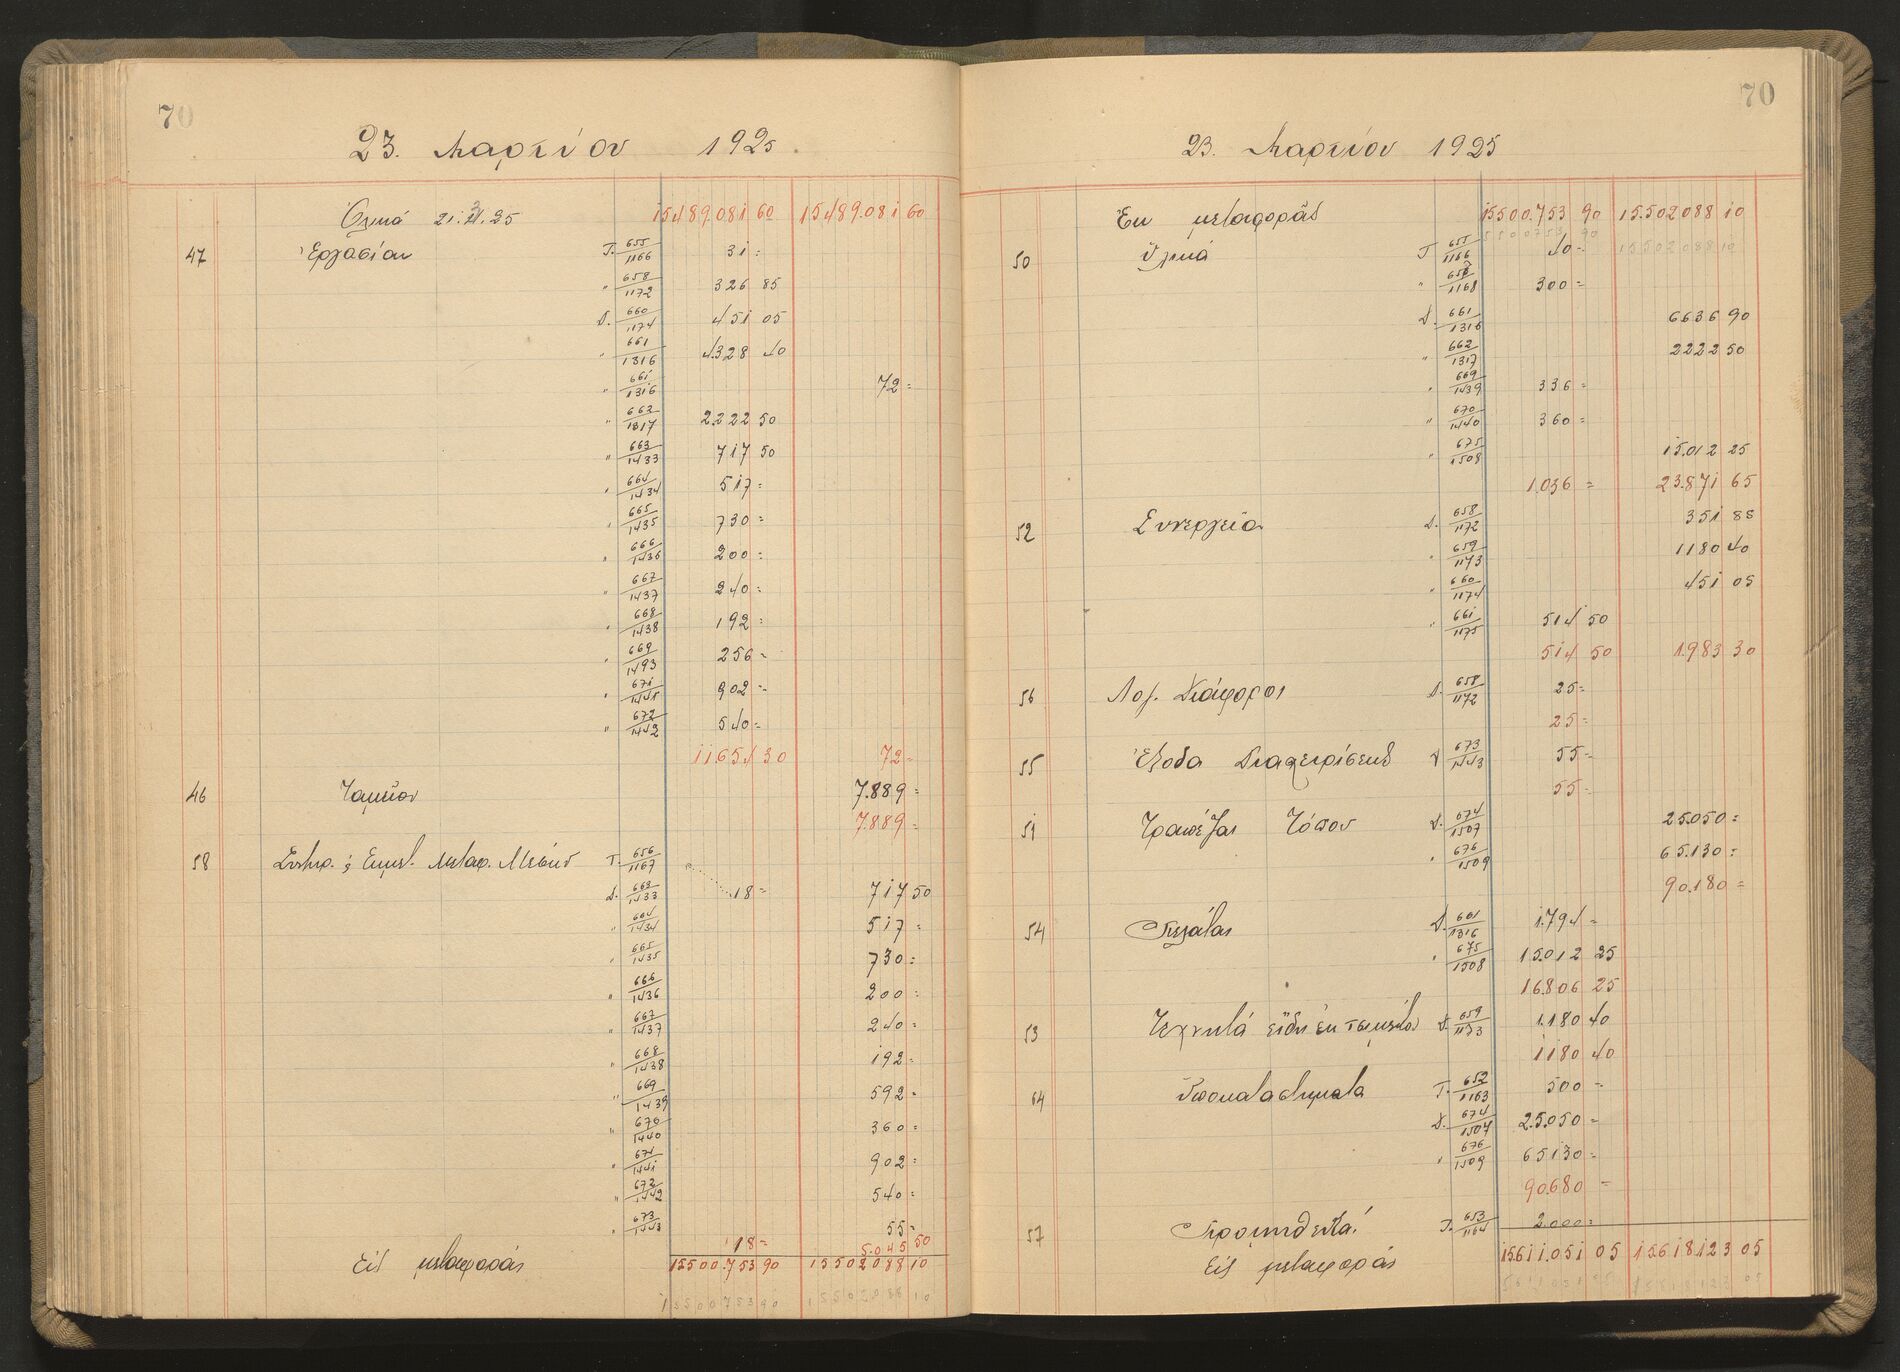 70
23. Μαρτίου 1925
Ὁλικά 21.3.25 15489.081 60 15489.081 60
47 Ἐργασίαι Τ. 655/1166 31 =
" 658/1172 326 85
Δ. 660/1174 451 05
" 661/1316 4.328 40
" 661/1316 72 =
" 662/1317 2.222 50
" 663/1433 717 50
" 664/1434 517 =
" 665/1435 730 =
" 666/1436 200 =
" 667/1437 240 =
" 668/1438 192 =
" 669/1493 256 =
" 671/1441 902 =
" 672/1442 540 =
11.654 30 72 =
46 Ταμεῖον 7.889 =
7.889 =
58 Μεταφ. Μέσων Τ. 656/1167
Δ. 663/1433 18 = 717 50
" 664/1434 517 =
" 665/1435 730 =
" 666/1436 200 =
" 667/1437 240 =
" 668/1438 192 =
" 669/1439 592 =
" 670/1440 360 =
" 671/1441 902 =
" 672/1442 540 =
" 673/1443 55 =
18 = 5.045 50
Εἰς μεταφοράν 15500.753 90 15502088 10
15500753 90 15502088 10
70
23. Μαρτίου 1925
Ἐκ μεταφορᾶς 15500.753 90 15.502088 10
15500753 90 15502088 10
50 Ὑλικά Τ 655/1166 40 =
" 657/1168 300 =
Δ. 661/1316 6636 90
" 662/1317 2222 50
" 669/1439 336 =
" 670/1440 360 =
" 675/1508 15.012 25
1.036 = 23.871 65
52 Συνεργεῖα Δ. 658/1172 351 85
" 659/1173 1180 40
" 660/1174 451 05
" 661/1175 514 50
514 50 1.983 30
56 Λογ. Διάφοροι Δ. 658/1172 25 =
25 =
55 Ἔξοδα Διαχειρίσεως Δ 673/1443 55 =
55 =
51 Τραπέζαι Τόπου Δ. 674/1507 25.050 =
" 676/1509 65.130 =
90.180 =
54 Πελάται Δ. 661/1316 1.794 =
" 675/1508 15.012 25
16.806 25
53 Τεχνητά εἴδη ἐκ Δ. 659/1173 1.180 40
1180 40
64 Ὑποκαταστήματα Τ. 652/1163 500 =
Δ. 674/1507 25.050 =
" 676/1509 65130 =
90.680 =
57 Προμηθευταί Τ. 653/1164 2.000 =
Εἰς μεταφοράν 15611.051 05 15.618123 05
15611051 05 15618123 05